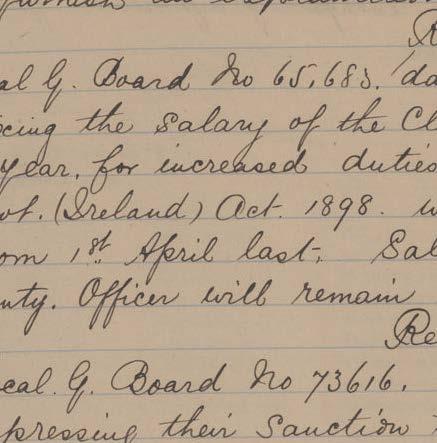 R
al G. Board No 65,683. da
cing the salary of the Cl
year, for increased duties
ovt. (Ireland) Act. 1898. w
om 1st April last. Sal
nty. Officer will remain
Re
cal. G. Board No 73616.
pressing their Sanction